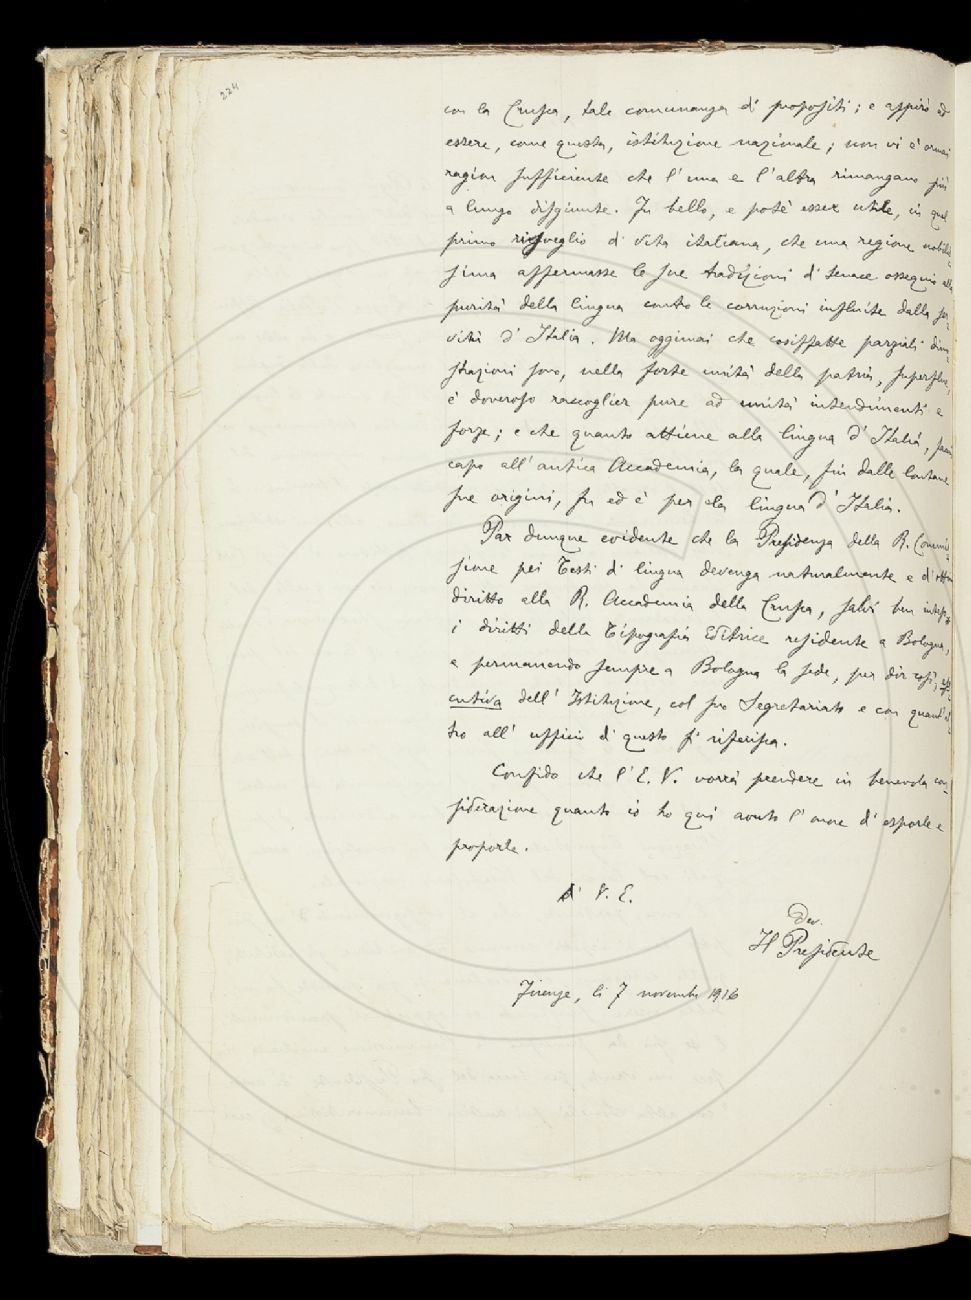 224
con la Crusca, tale comunanza di propositi; e aspirò ad
essere, come questa, istituzione nazionale; non vi è ormai
ragion sufficiente che l'una e l'altra rimangano più
a lungo disgiunte. Fu bello, e poté esser utile, in quel
primo risveglio di vita italiana, che una regione nobilis-
sima affermasse le sue tradizioni di tenace ossequio alla
purità della lingua contro le corruzioni influite dalla ser-
vitù d'Italia. Ma oggimai che cosiffatte parziali dimo-
strazioni sono, nella forte unità della patria, superflue,
è doveroso raccoglier pure ad unità intendimenti e
forze; e che quanto attiene alla lingua d'Italia, faccia
capo all'antica Accademia, la quale, fin dalle lontane
sue origini, fu ed è per la lingua d'Italia.
Par dunque evidente che la Presidenza della R. Commis-
sione pei Testi di lingua devenga naturalmente e d'
diritto alla R. Accademia della Crusca, salvi ben
i diritti della Tipografia Editrice residente a Bologna,
e permanendo sempre a Bologna la sede, per dir così, ese-
cutiva dell'Istituzione, col suo Segretariato e con quant'al-
tro all'ufficio di questo si riferisca.
Confido che l'E. V. vorrà prendere in benevola con-
siderazione quanto io ho qui avuto l'onore di esporle e
proporle.
Di V. E.
Dev.
Il Presidente
Firenze, li 7 novembre 1916